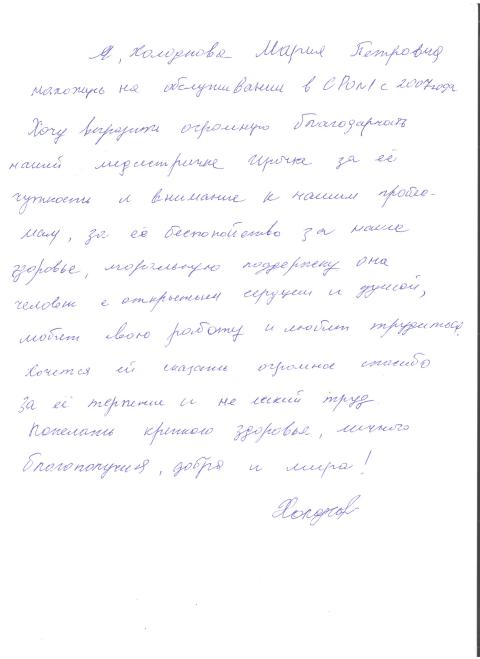 Я, Холоднова Мария Петровна
нахожусь на обслуживании в СРОМ1 с 2007 года
Хочу выразить огромную благодарность
нашей медсестричке Ирочке за её
чуткость и внимание к нашим пробле-
мам, за её беспокойство за наше
здоровье, моральную поддержку она
человек с открытым сердцем и душой,
любит свою работу и любит трудиться.
Хочется ей сказать огромное спасибо
за её терпение и не легкий труд.
Пожелать крепкого здоровья, личного
благополучия, добра и мира!